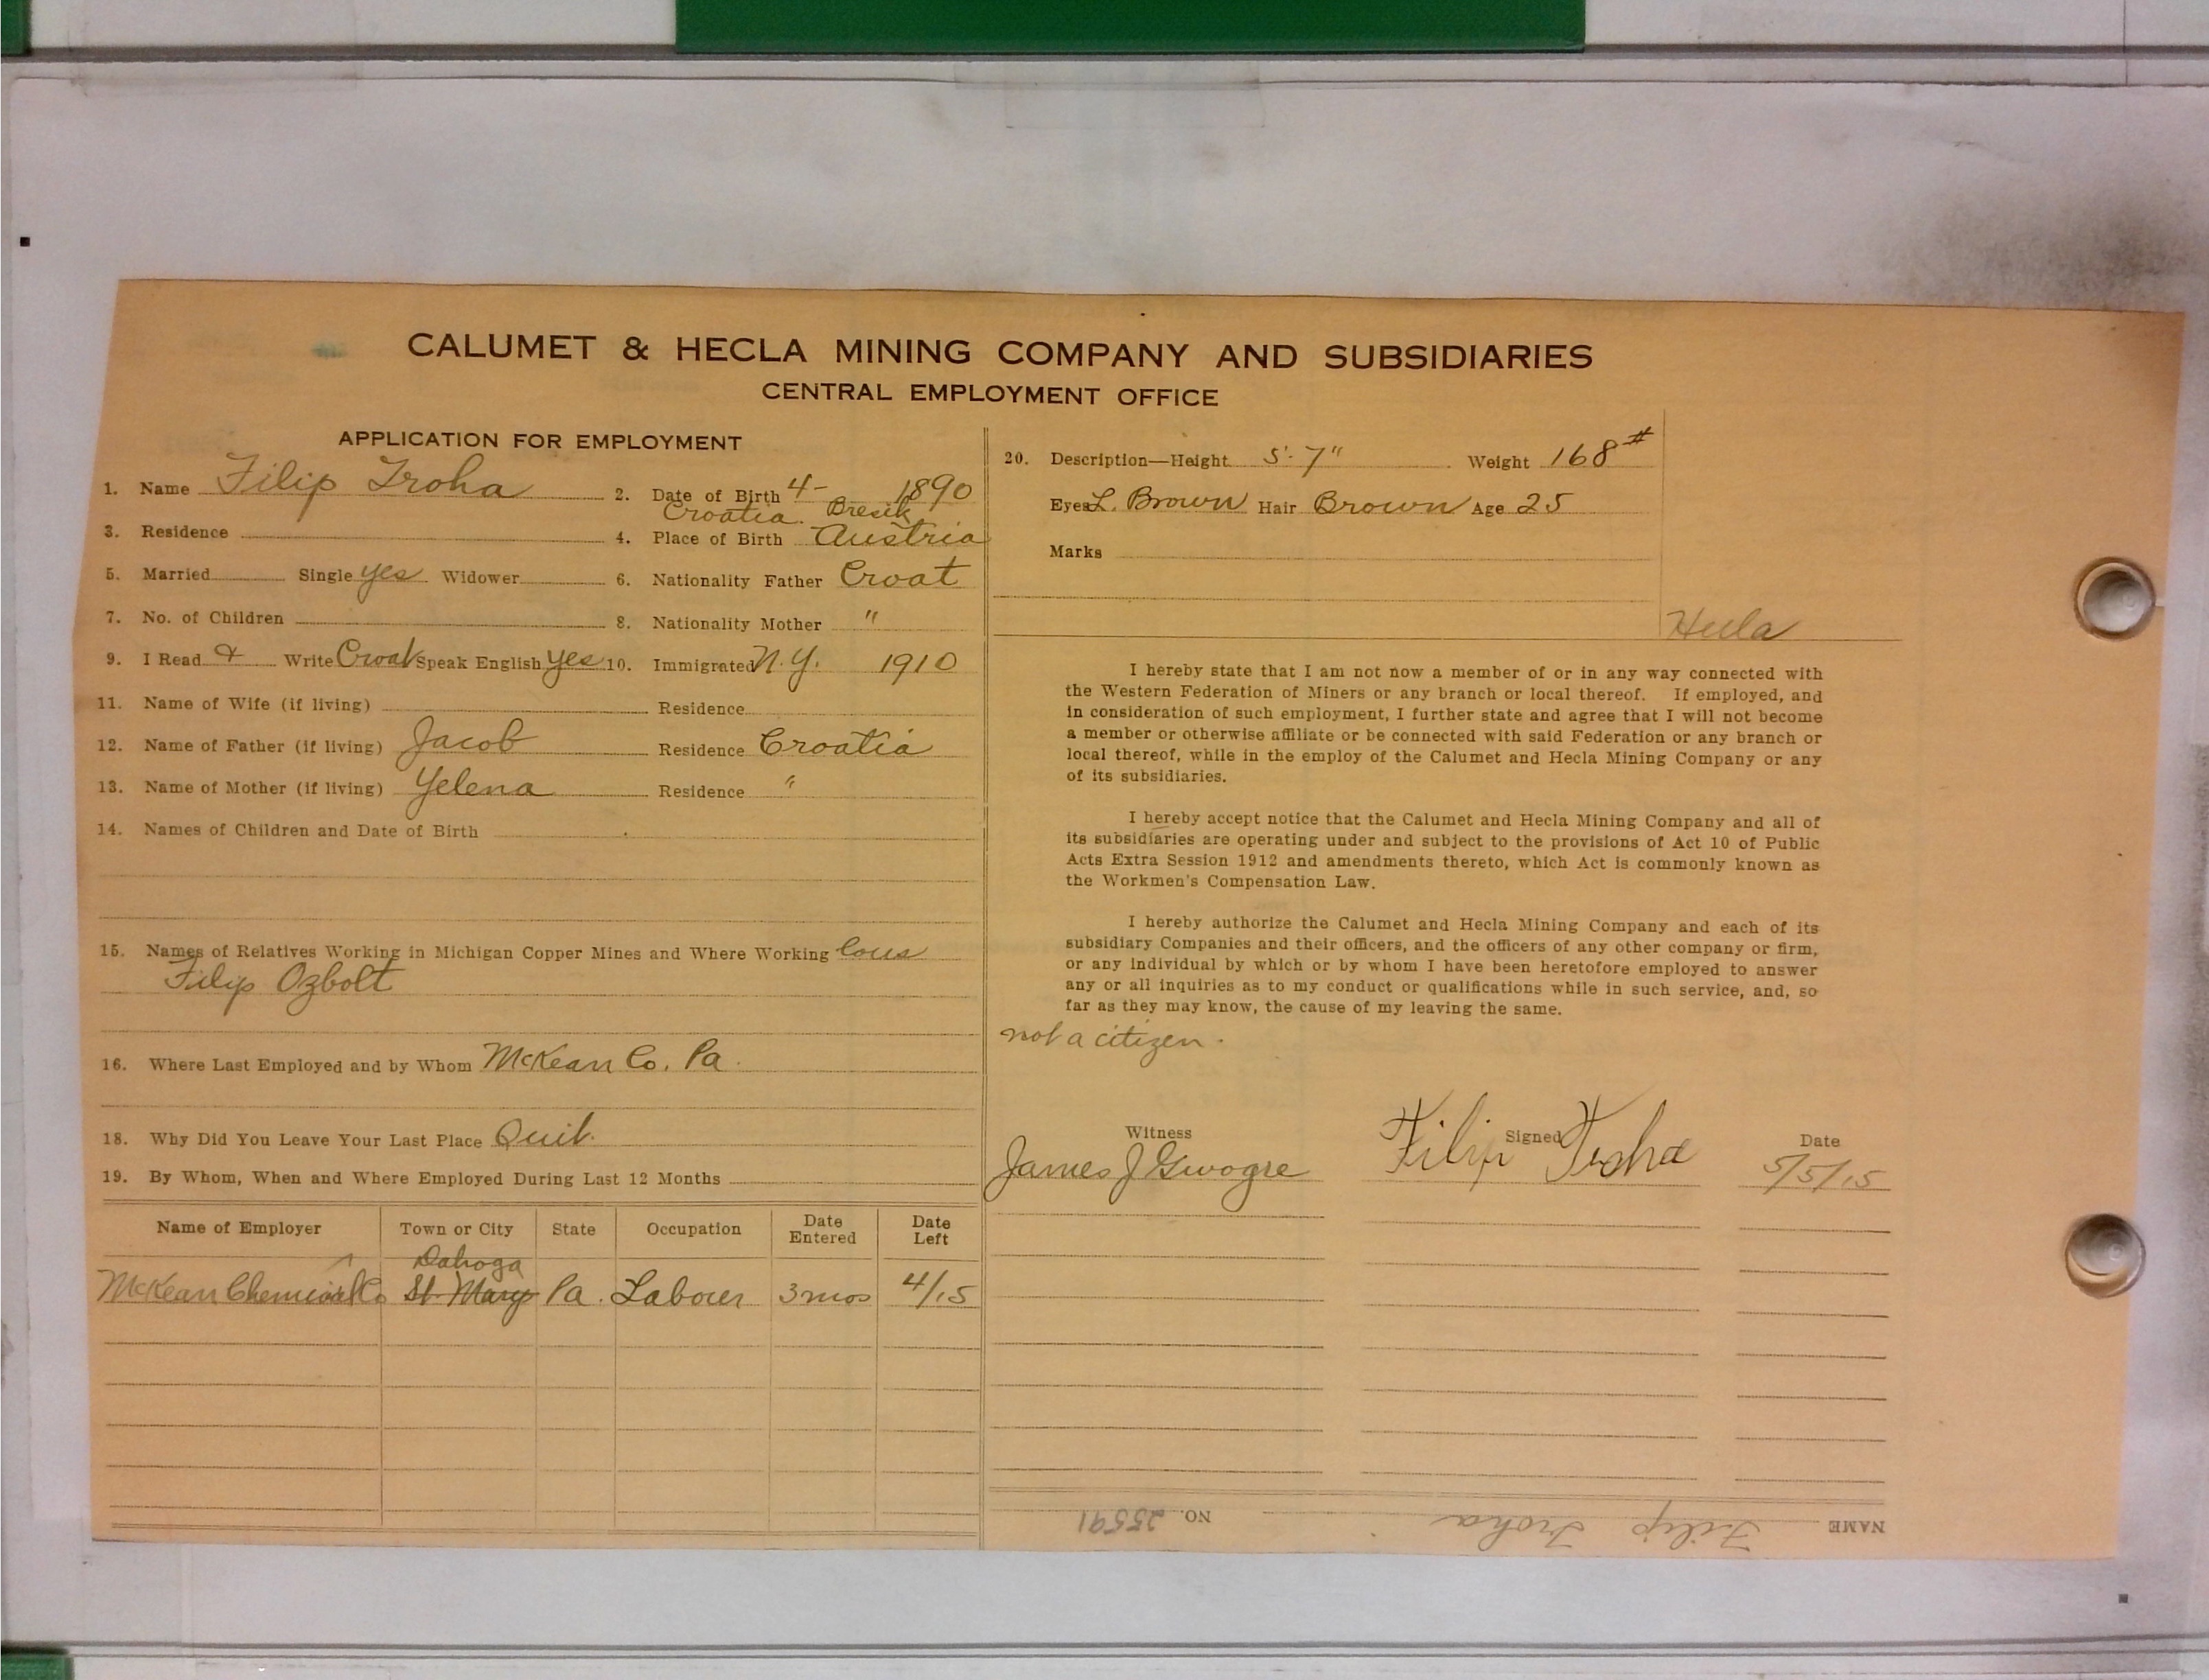 CALUMET & HECLA MINING COMPANY AND SUBSIDIARIES
CENTRAL EMPLOYMENT OFFICE
APPLICATION FOR EMPLOYMENT
1. Name Filip Troha 2. Date of Birth 4- 1890
Croatia. Bresik
3. Residence 4. Place of Birth Austria
5. Married Single yes Widower 6. Nationality Father Croat
7. No. of Children 8. Nationality Mother "
9. I Read & Write Croat Speak English Yes 10. Immigrated N.Y. 1910
11. Name of Wife (if living) Residence
12. Name of Father (if living) Jacob Residence Croatia
13. Name of Mother (if living) Yelena Residence "
14. Names of Children and Date of Birth
15. Names of Relatives Working in Michigan Copper Mines and Where Working Cous
Filip Ozbolt
16. Where Last Employed and by Whom McKean Co. Pa.
18. Why Did You Leave Your Last Place Quit.
19. By Whom, When and Where Employed During Last 12 Months
Name of Employer Town or City State Occupation Date Entered Date Left
Dahoga
McKean Chemical Co St. Marys Pa. Labour 3 mos 4/15
20. Description—Height 5'-7" Weight 168#
Eyes L. Brown Hair Brown Age 25
Marks
Hecla
I hereby state that I am not now a member of or in any way connected with
the Western Federation of Miners or any branch or local thereof. If employed, and
in consideration of such employment, I further state and agree that I will not become
a member or otherwise affiliate or be connected with said Federation or any branch or
local thereof, while in the employ of the Calumet and Hecla Mining Company or any
of its subsidiaries.
I hereby accept notice that the Calumet and Hecla Mining Company and all of
its subsidiaries are operating under and subject to the provisions of Act 10 of Public
Acts Extra Session 1912 and amendments thereto, which Act is commonly known as
the Workmen's Compensation Law.
I hereby authorize the Calumet and Hecla Mining Company and each of its
subsidiary Companies and their officers, and the officers of any other company or firm,
or any individual by which or by whom I have been heretofore employed to answer
any or all inquiries as to my conduct or qualifications while in such service, and, so
far as they may know, the cause of my leaving the same.
not a citizen.
Witness Signed Date
James J Filip Troha 5/5/15
NAME Filip Troha NO. 25591